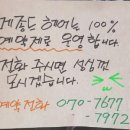 계종도 헤어는 100%
예약제로 운영합니다
전화 주시면 성심껏
모시겠습니다.
예약전화 070-7677
-7972